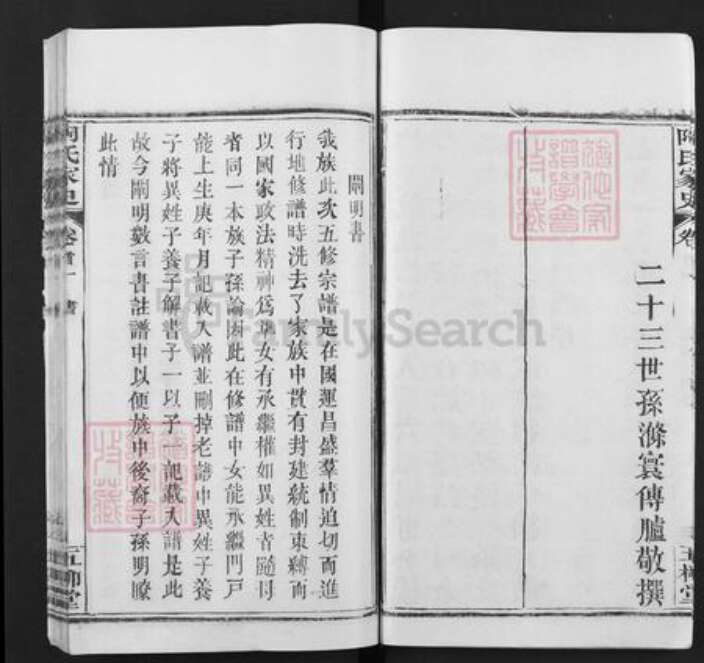 陶氏家史
卷
二十三世孫滌寰傳臚敬撰
五柳堂
闡明書
我族此次五修宗譜是在國運昌盛羣情迫切而進
行地修譜時洗去了家族中貫有封建統制束縛而
以國家政法精神為準女有承繼權如異姓者隨母
者同一本族子孫論因此在修譜中女能承繼門戶
能上生庚年月記載入譜並刪掉老譜中異姓子養
子將異姓子養子解書子一以子一記載入譜是此
故今闡明數言書註譜中以便族中後裔子孫明瞭
此情
陶氏家史
卷首一
書
五柳堂
FamilySearch